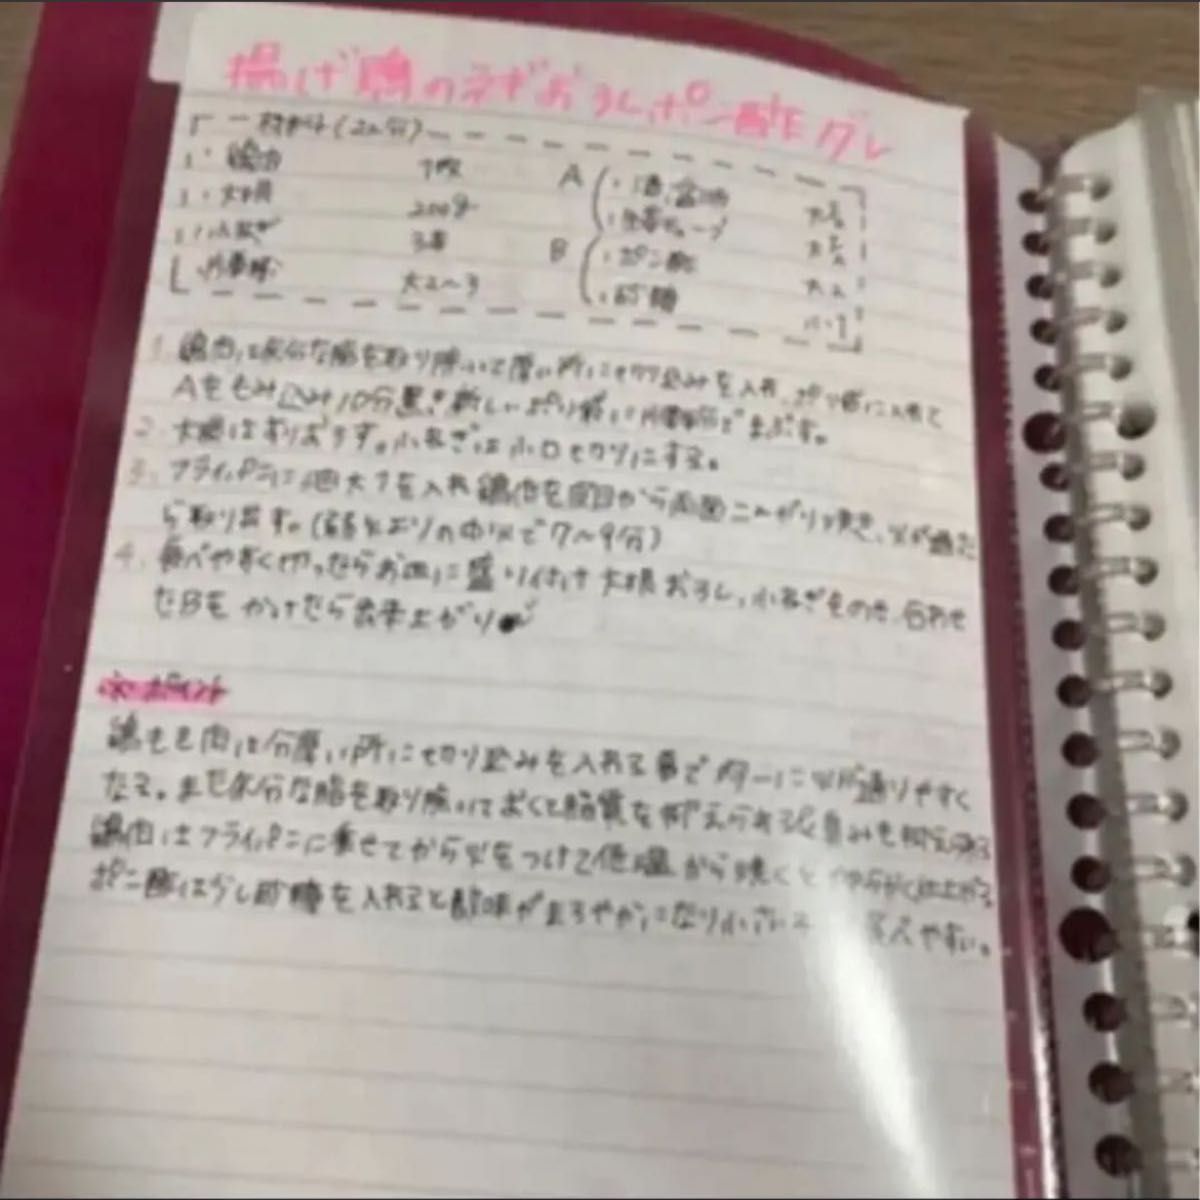 揚げ鶏のネギおろしポン酢ダレ
材料(2人分)
・鶏肉 1枚 A ・酒、醤油 大
・大根 200g ・生姜チューブ 大
・小ねぎ 3本 B ・ポン酢 大2
・片栗粉 大2〜3 ・砂糖 小1
1. 鶏肉は余分な脂を取り除いて厚い所に切り込みを入れ、ポリ袋に入れて
Aをもみ込み10分置き新しいポリ袋で片栗粉でまぶす。
2. 大根はすりおろす。小ねぎは小口切りにする。
3. フライパンに油大1を入れ鶏肉を皮目から両面こんがりと焼き、火が通った
ら取り出す。(弱火よりの中火で7〜9分)
4. 食べやすく切ったらお皿に盛り付け大根おろし、小ねぎをのせ、合わせ
たBをかけたら出来上がり
☆ポイント
鶏もも肉は分厚い所に切り込みを入れる事で均一に火が通りやすく
なる。また余分な脂を取り除いておくと脂質を抑えられ臭みも抑えられる
鶏肉はフライパンに乗せてから火をつけて低温から焼くと仕上がる
ポン酢は少し砂糖を入れると酸味がまろやかになり小さい やすい。